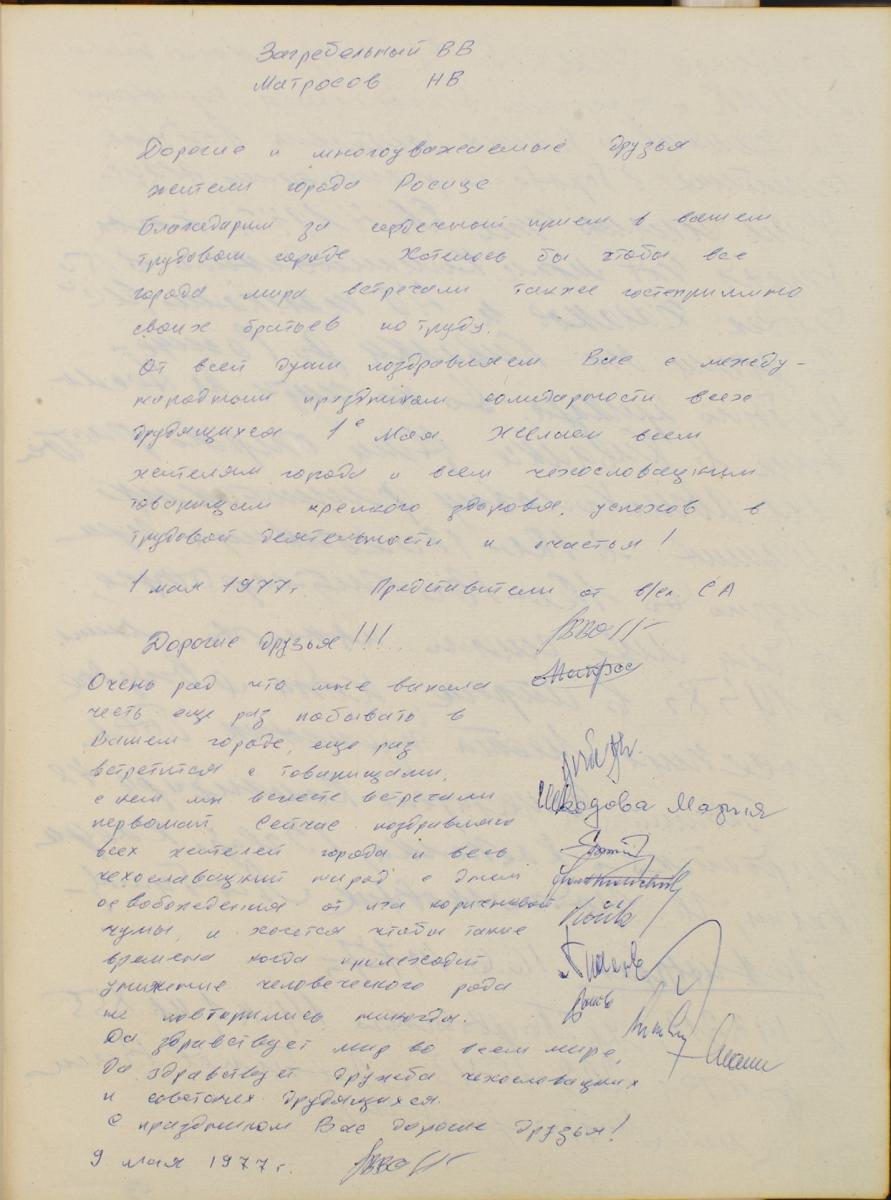 Загребельный ВВ
Матросов НВ
Дорогие и многоуважаемые друзья
жители города Росице
Благодарим за сердечный прием в вашем
трудовом городе Хотелось бы чтобы все
города мира встречали также гостеприимно
своих братьев по труду.
От всей души поздравляем Вас с между-
народным праздником солидарности всех
трудящихся 1е Мая. Желаем всем
жителям города и всем чехословацким
товарищам крепкого здоровья, успехов в
трудовой деятельности и счастья!
1 мая 1977г. Представители от в/сл. СА
Дорогие друзья!!!
Матрос
Очень рад что мне выпала
честь еще раз побывать в
Вашем городе, еще раз
встретится с товарищами,
с кем мы вместе встречали
Шкодова Мария
первомай Сейчас поздравляю
всех жителей города и весь
чехословацкий народ с днем
освобождения от ига коричневой
чумы, и хочется чтобы такие
времена когда происходит
унижение человеческого рода
не повторились никогда.
Да здравствует мир во всем мире,
Да здравствует дружба чехословацких
и советских трудящихся.
С праздником Вас дорогие друзья!
9 мая 1977г.